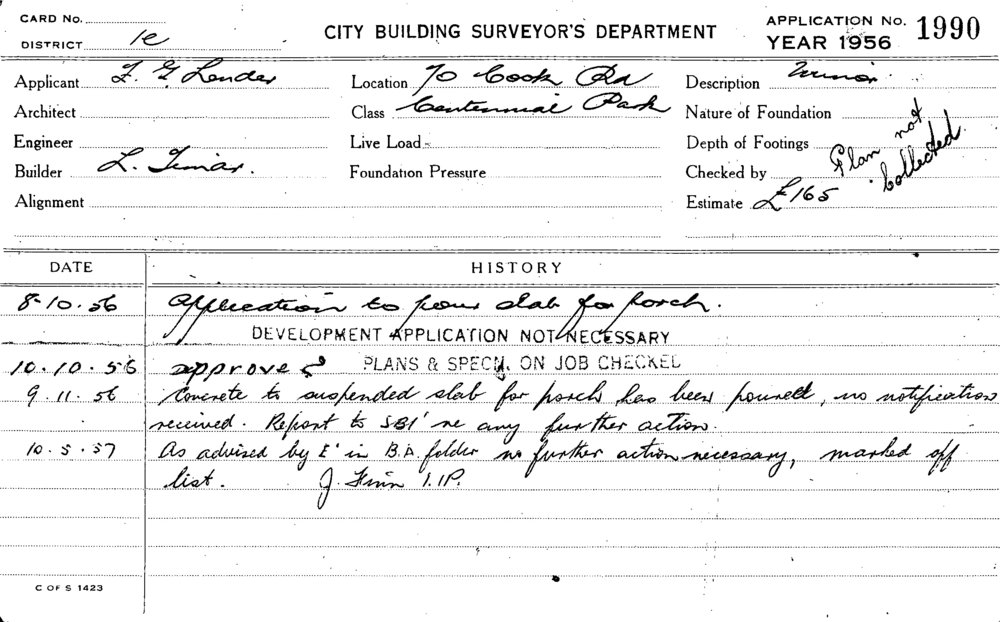 CARD No.
DISTRICT 1e
CITY BUILDING SURVEYOR'S DEPARTMENT
APPLICATION No. 1990
YEAR 1956
Applicant F. G. Lender
Location 70 Cook Rd
Description Minor
Architect
Class Centennial Park
Nature of Foundation
Engineer
Live Load
Depth of Footings
Builder L. Timar.
Foundation Pressure
Checked by
Plan not Collected.
Alignment
Estimate £165
DATE
HISTORY
8-10.56 Application to pour slab for porch.
DEVELOPMENT APPLICATION NOT NECESSARY
10.10.56 approved PLANS & SPECN. ON JOB CHECKED
9.11.56 Concrete to suspended slab for porch has been poured, no notification
received. Report to SBI 're any further action.
10.5.57 As advised by E' in B.A. folder no further action necessary, marked off
list. J. Finn
C OF S 1423